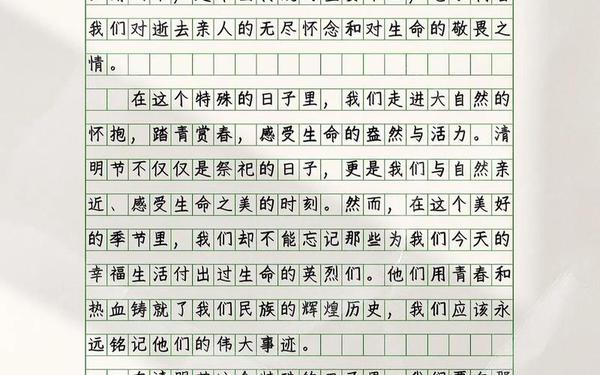 我们对逝去亲人的无尽怀念和对生命的敬畏之
情。
在这个特殊的日子里，我们走进大自然的
怀抱，踏青赏春，感受生命的盎然与活力。清
明节不仅仅是祭祀的日子，更是我们与自然亲
近、感受生命之美的时刻。然而，在这个美好
的季节里，我们却不能忘记那些为我们今天的
幸福生活付出过生命的英烈们。他们用青春和
热血铸就了我们民族的辉煌历史，我们应该永
远铭记他们的伟大事迹。